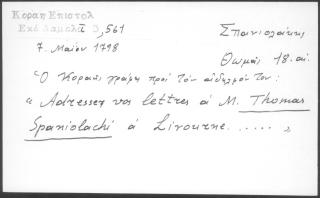 Κοραη Επιστολ
Εκδ Δαμαλᾶ 3,561
Σπανιολάκης
7 Μαίου 1798
Θωμᾶς 18. αι.
Ὁ Κοραῆς γράφει πρὸς τὸν ἀδελφόν του:
« Adressez vos lettres à M. Thomas
Spaniolachi à Livourne ..... »